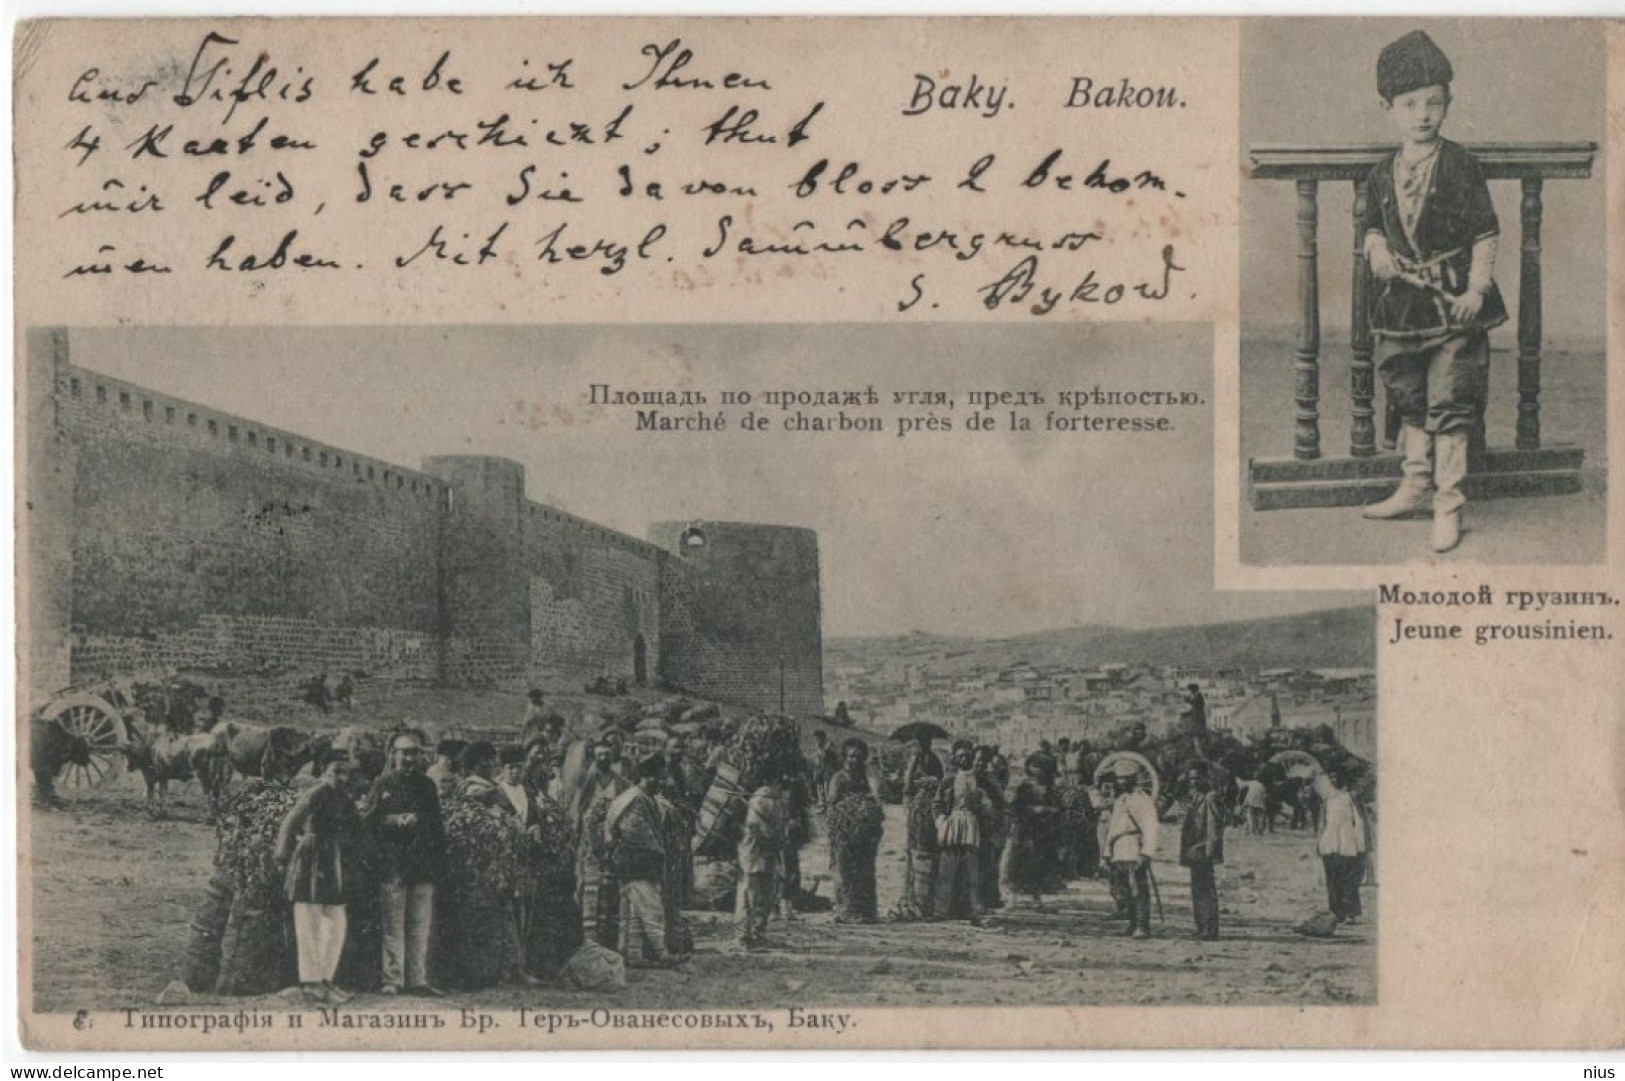 Aus Tiflis habe ich Ihnen
4 Karten geschickt; thut
mir leid, dass Sie davon bloss 2 bekom-
men haben. Mit herzl. Sammlergruss
S. Bykow.
Баку. Bakou.
Площадь по продажѣ угля, предъ крѣпостью.
Marché de charbon près de la forteresse.
Молодой грузинъ.
Jeune grousinien.
Типографія и Магазинъ Бр. Теръ-Ованесовыхъ, Баку.
www.delcampe.net
nius